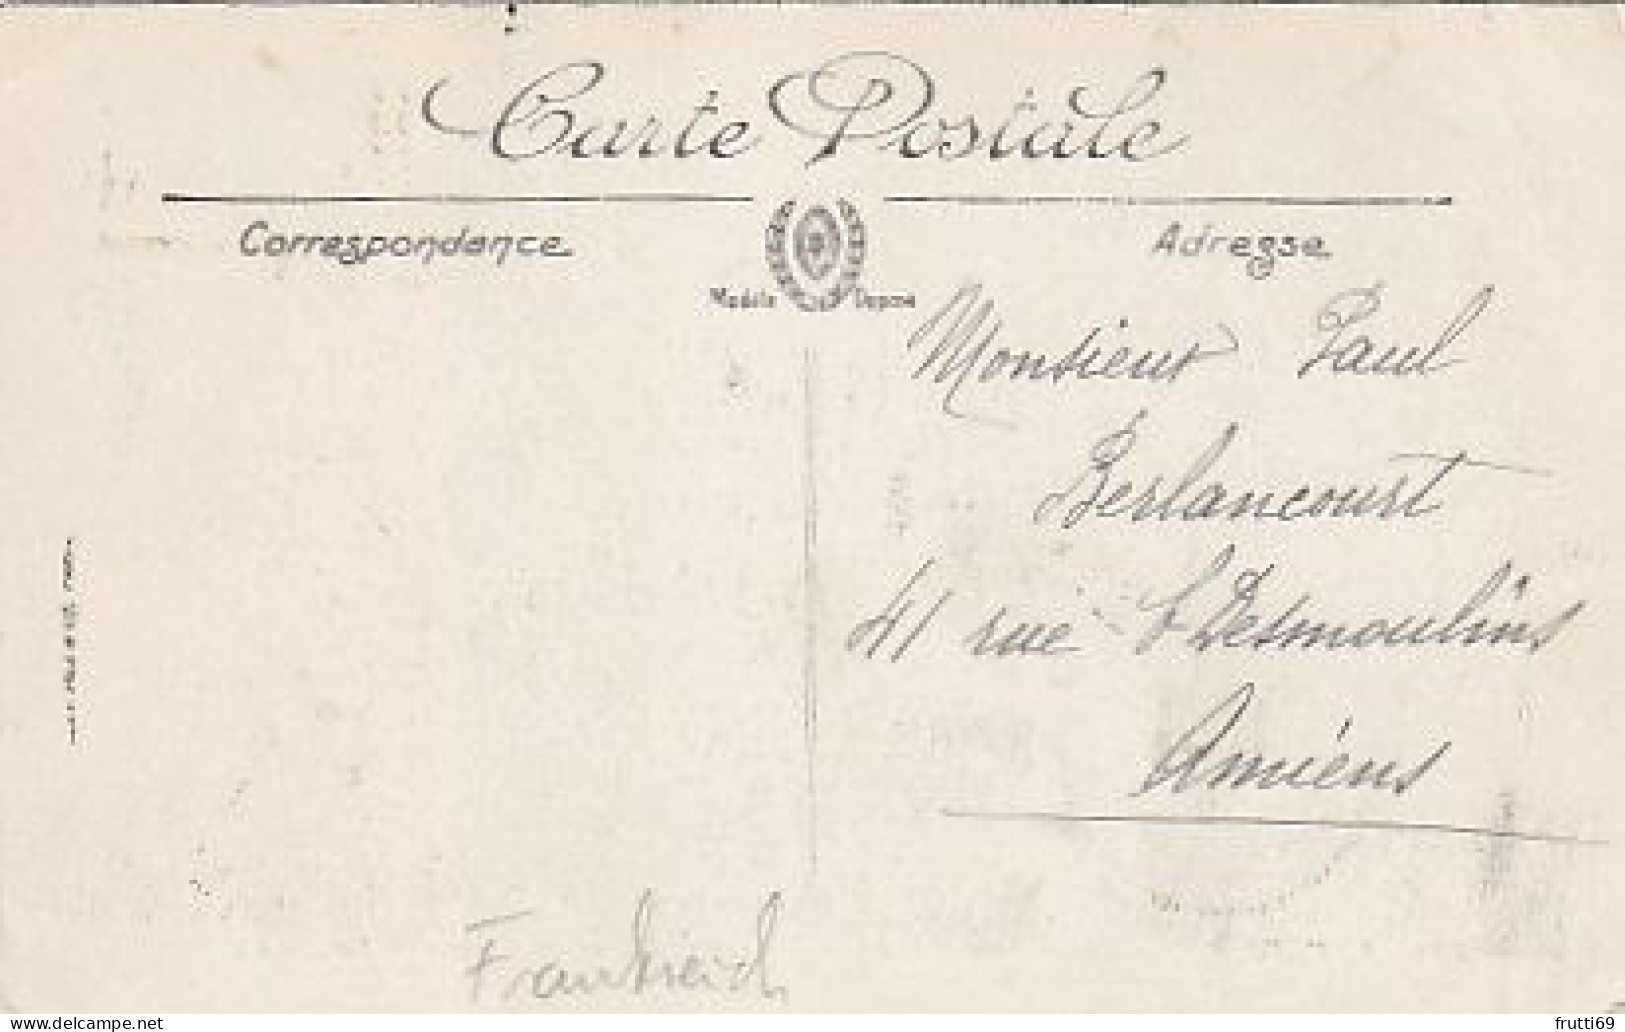 Carte Postale
Correspondance
Adresse
Modèle Déposé
Monsieur Paul
Berlancourt
41 rue C Desmoulins
Amiens
Frankreich
www.delcampe.net
frutti69